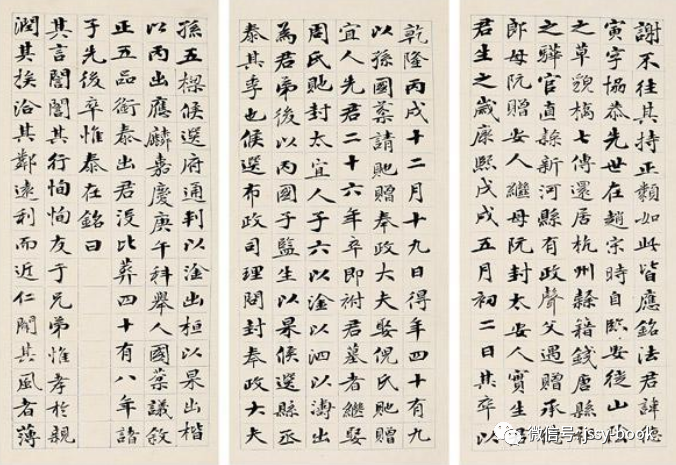 謝不往其持正類如此皆應銘法君諱
寅字協恭先世在趙宋時自臨安徙山
之草貌橋七傳還居杭州隸籍錢唐縣
之驊官直隸新河縣有政聲父遇贈承
郎母阮贈安人繼母阮封太安人實生
君生之歲康熙戊戌五月初二日其卒以
乾隆丙戌十二月十九日得年四十有九
以孫國棻請貤贈奉政大夫娶倪氏貤贈
宜人先君二十六年卒即祔君墓者繼娶
周氏貤封太宜人子六以淦以泗以濤出
為君弟後以丙國子監生以杲候選縣丞
泰其季也候選布政司理問封奉政大夫
孫五樑候選府通判以淦出桓以杲出楷
以丙出應麟嘉慶庚午科舉人國棻議敘
正五品銜泰出君沒比葬四十有八年諸
子先後卒惟泰在銘曰
其言誾誾其行恂恂友于兄弟惟孝於親
潤其族洽其鄰遠利而近仁聞其風者薄
微信号: jssy-book